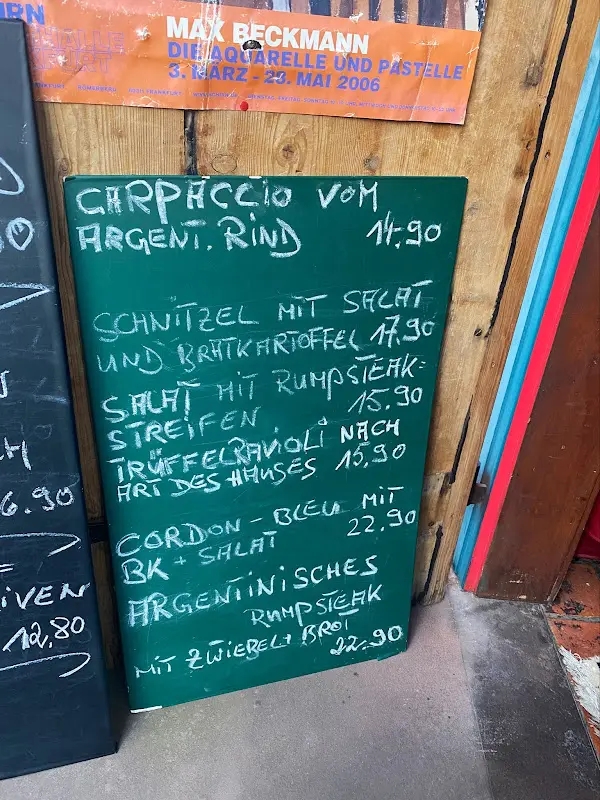 MAX BECKMANN
DIE AQUARELLE UND PASTELLE
3. MÄRZ - 28. MAI 2006
CARPACCIO VOM
ARGENT. RIND 14.90
SCHNITZEL MIT SALAT
UND BRATKARTOFFEL 17.90
SALAT MIT RUMPSTEAK=
STREIFEN 15.90
TRÜFFELRAVIOLI NACH
ART DES HAUSES 15,90
CORDON-BLEU MIT
BK + SALAT 22.90
ARGENTINISCHES
RUMPSTEAK
MIT ZWIEBEL + BROT
22.90
6.90
IVEN
12,80